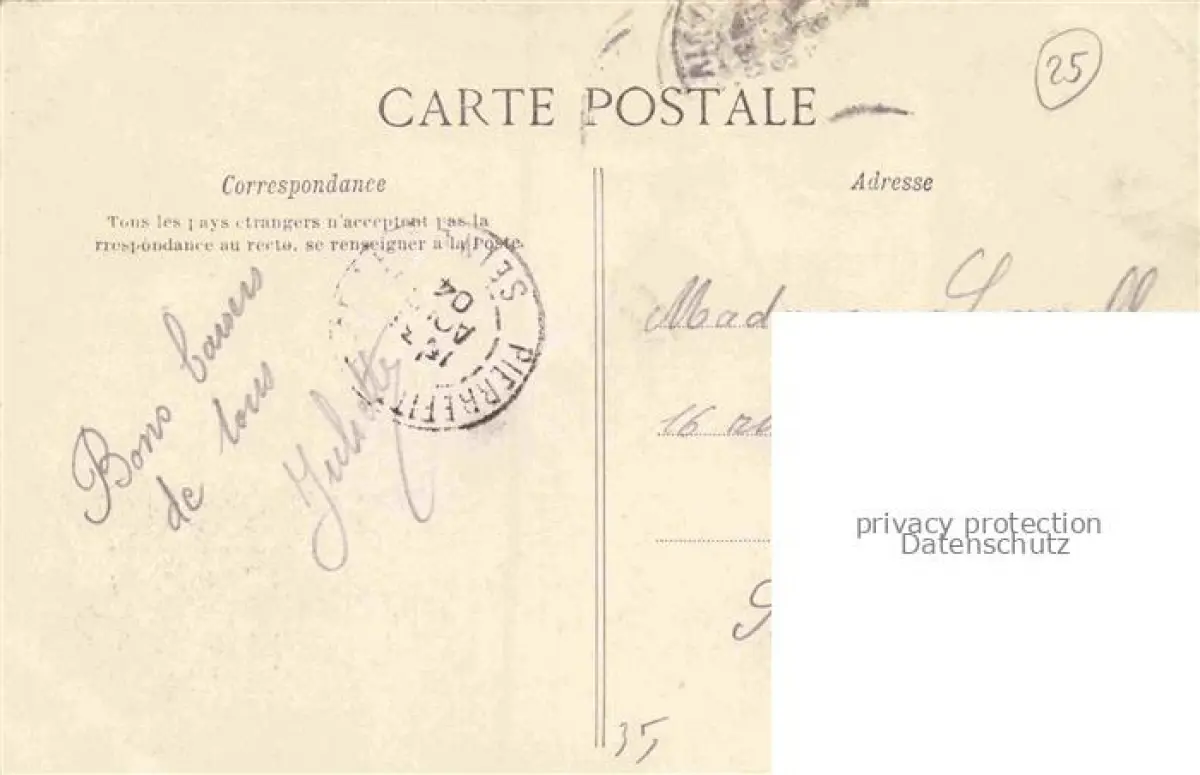 25
CARTE POSTALE
Correspondance
Adresse
Tous les pays etrangers n'acceptent pas la
rrespondance au recto, se renseigner a la Poste.
Bons baisers
de tous
Juliette
PIERREFIT SEINE
04
16
privacy protection
Datenschutz
35